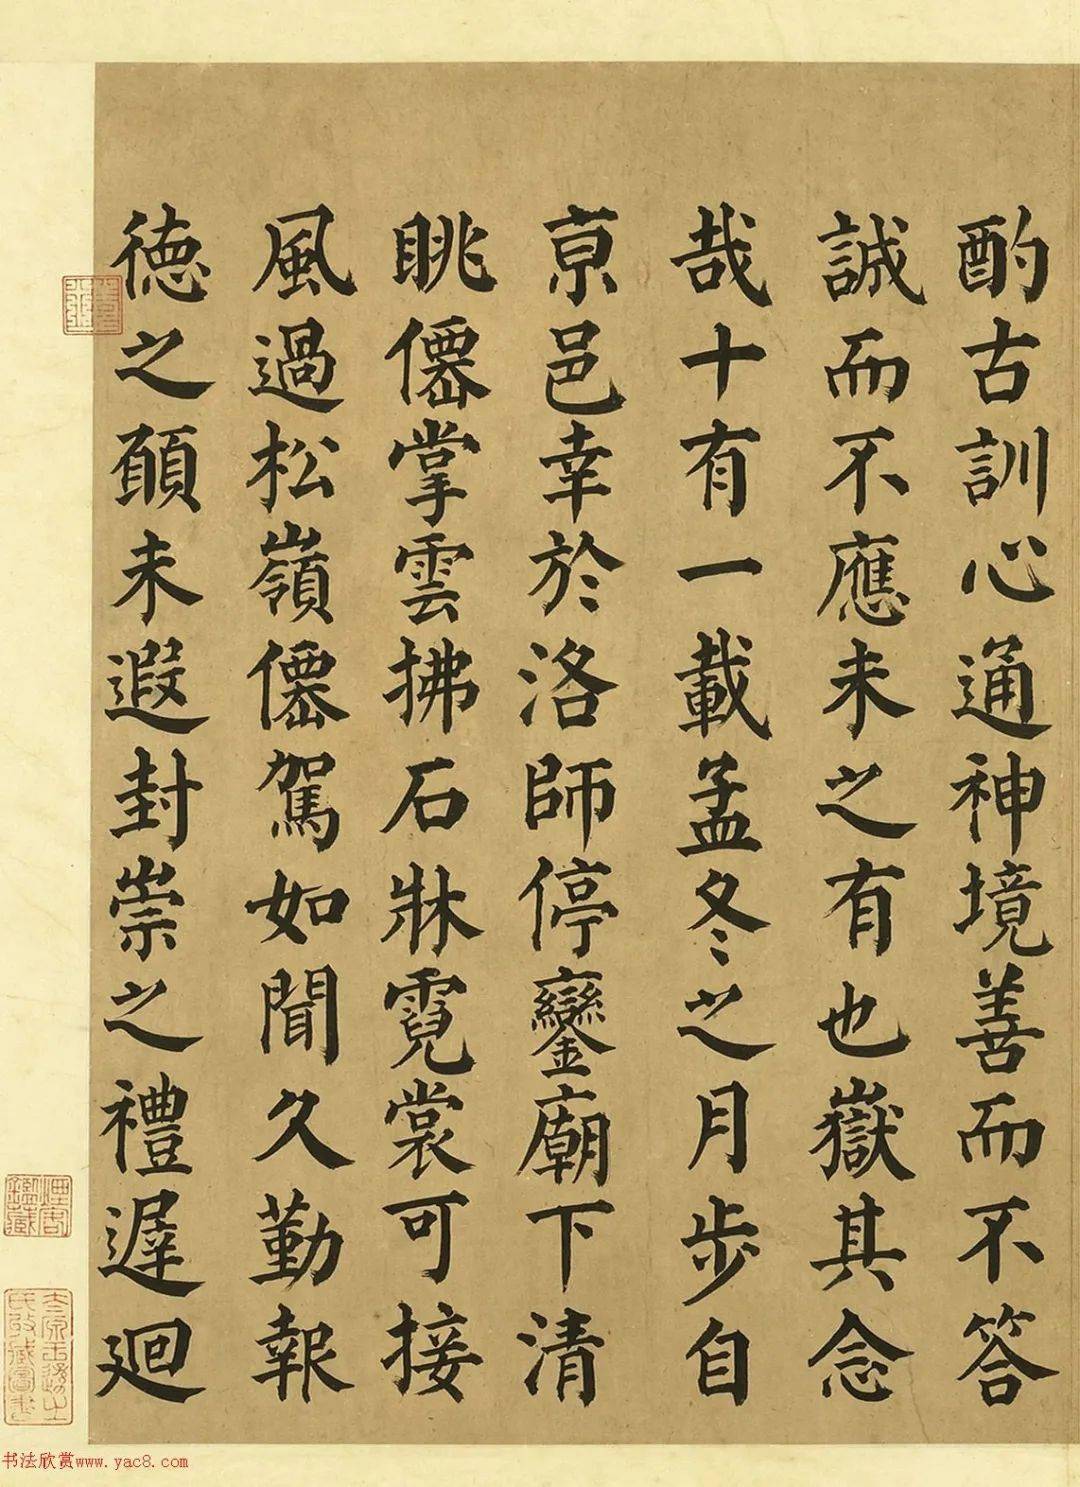 酌古訓心通神境善而不答
誠而不應未之有也嶽其念
哉十有一載孟冬之月步自
京邑幸於洛師停鑾廟下清
眺僊掌雲拂石牀霓裳可接
風過松嶺僊駕如聞久勤報
徳之願未遐封崇之禮遲迴
書法欣赏www.yac8.com